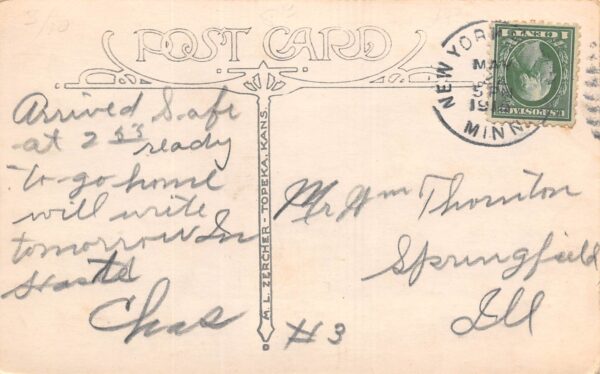 POST CARD
Arrived Safe
at 2 53 ready
to go home
will write
tomorrow In
Haste
Chas
M. L. ZERCHER - TOPEKA, KANS.
NEW YORK
MAY
MINN.
1 CENT 1
U.S. POSTAGE
Mr Wm Thornton
Springfield
Ill
#3